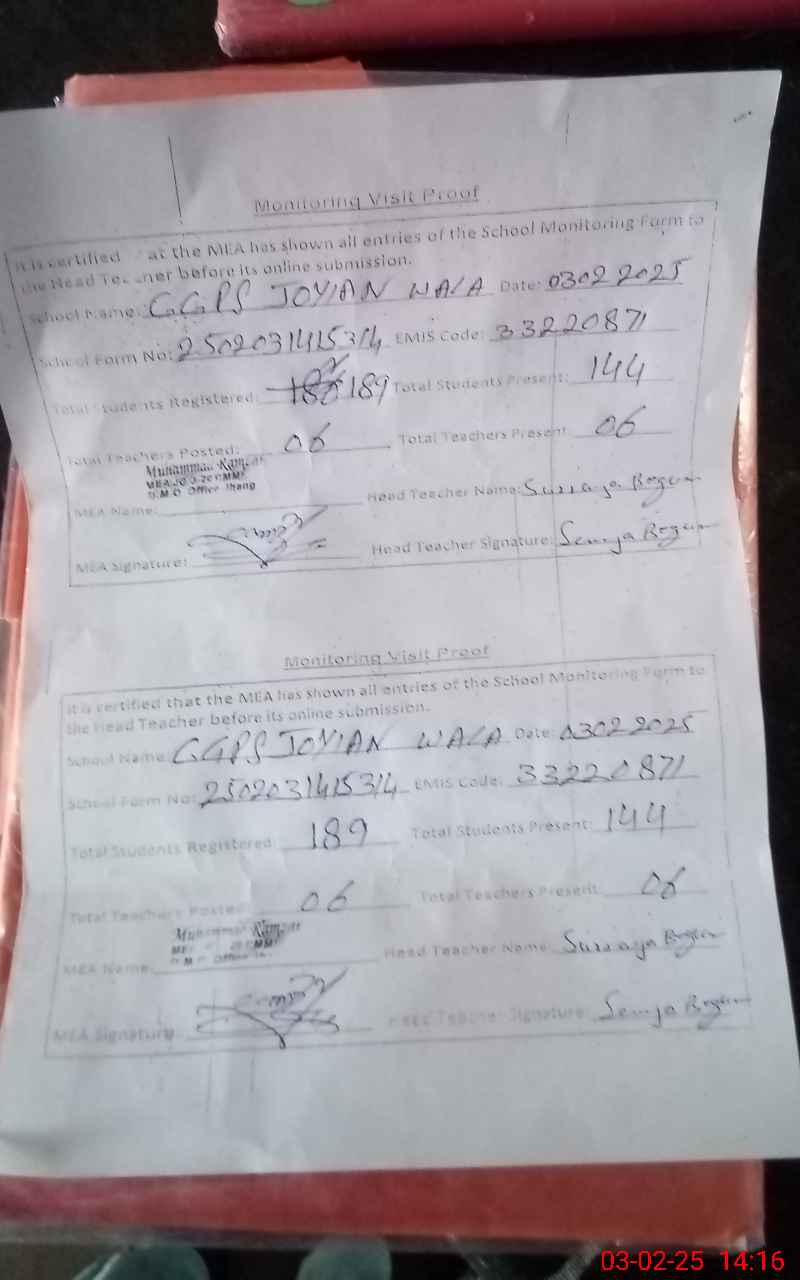 Monitoring Visit Proof
It is certified at the MEA has shown all entries of the School Monitoring Form to
the Head Teacher before its online submission.
School Name: GGPS JOYIAN WALA Date: 03022025
School Form No: 2502031415314 EMIS Code: 33220871
Total Students Registered: 189 Total Students Present: 144
Total Teachers Posted: 06 Total Teachers Present: 06
Muhammad
D.M.O Office Jhang
MEA Name: Head Teacher Name: Surraya Begum
MEA Signature: Head Teacher Signature: Begum
Monitoring Visit Proof
It is certified that the MEA has shown all entries of the School Monitoring Form to
the Head Teacher before its online submission.
School Name GGPS JOYIAN WALA Date: 03022025
School Form No: 2502031415314 EMIS Code: 33220871
Total Students Registered: 189 Total Students Present: 144
Total Teachers Posted 06 Total Teachers Present 06
Muhammad
MEA Name: Head Teacher Name: Surraya Begum
MEA Signature: Head Teacher Signature: Begum
03-02-25 14:16